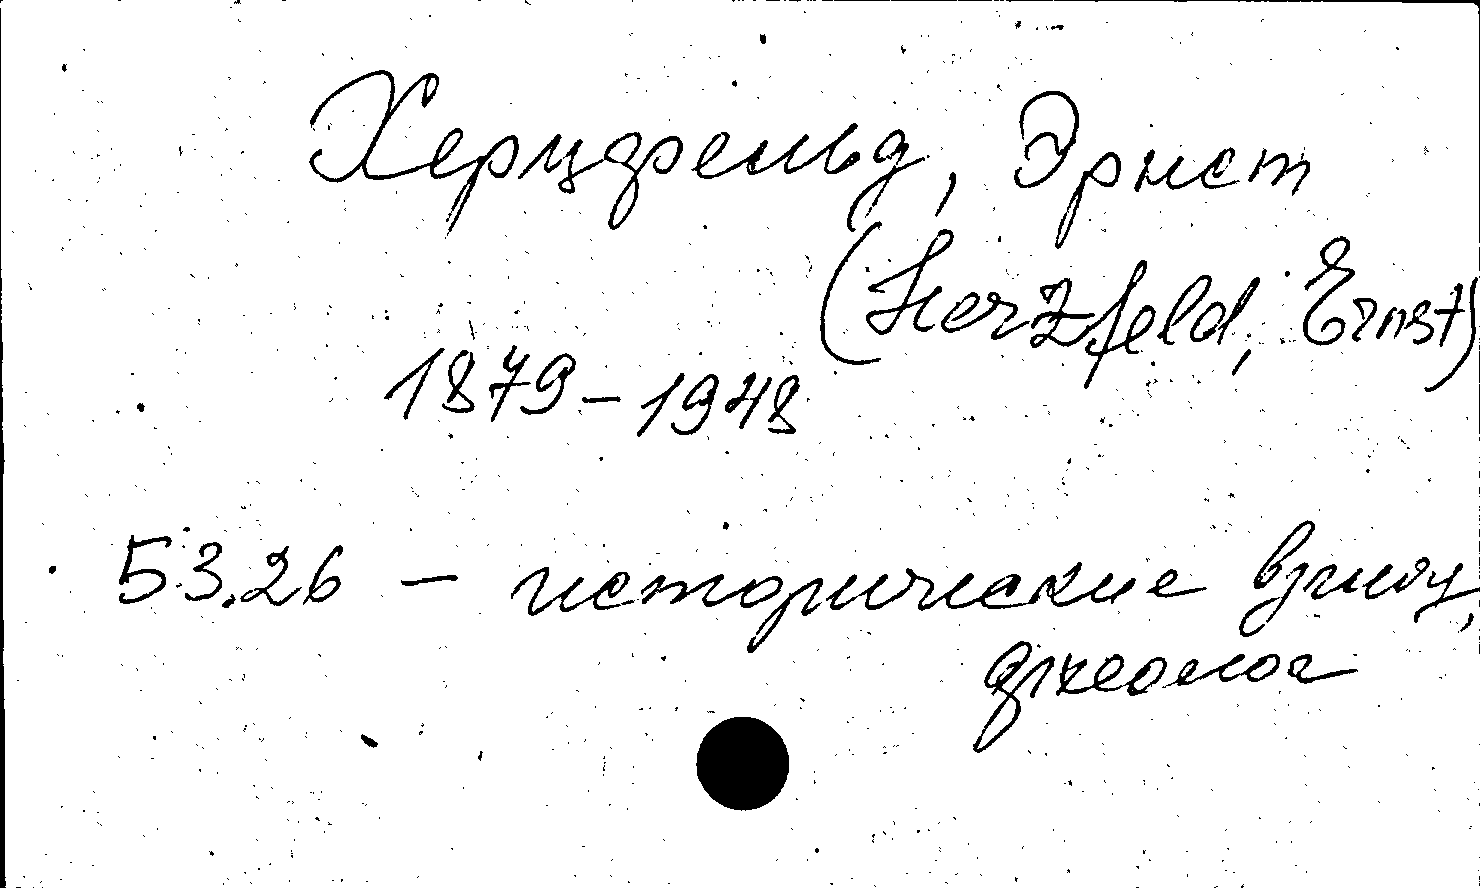 Херцфельд, Эрнст
(Herzfeld, Ernst)
1879–1948
53.26 – исторические взгляд,
археолог